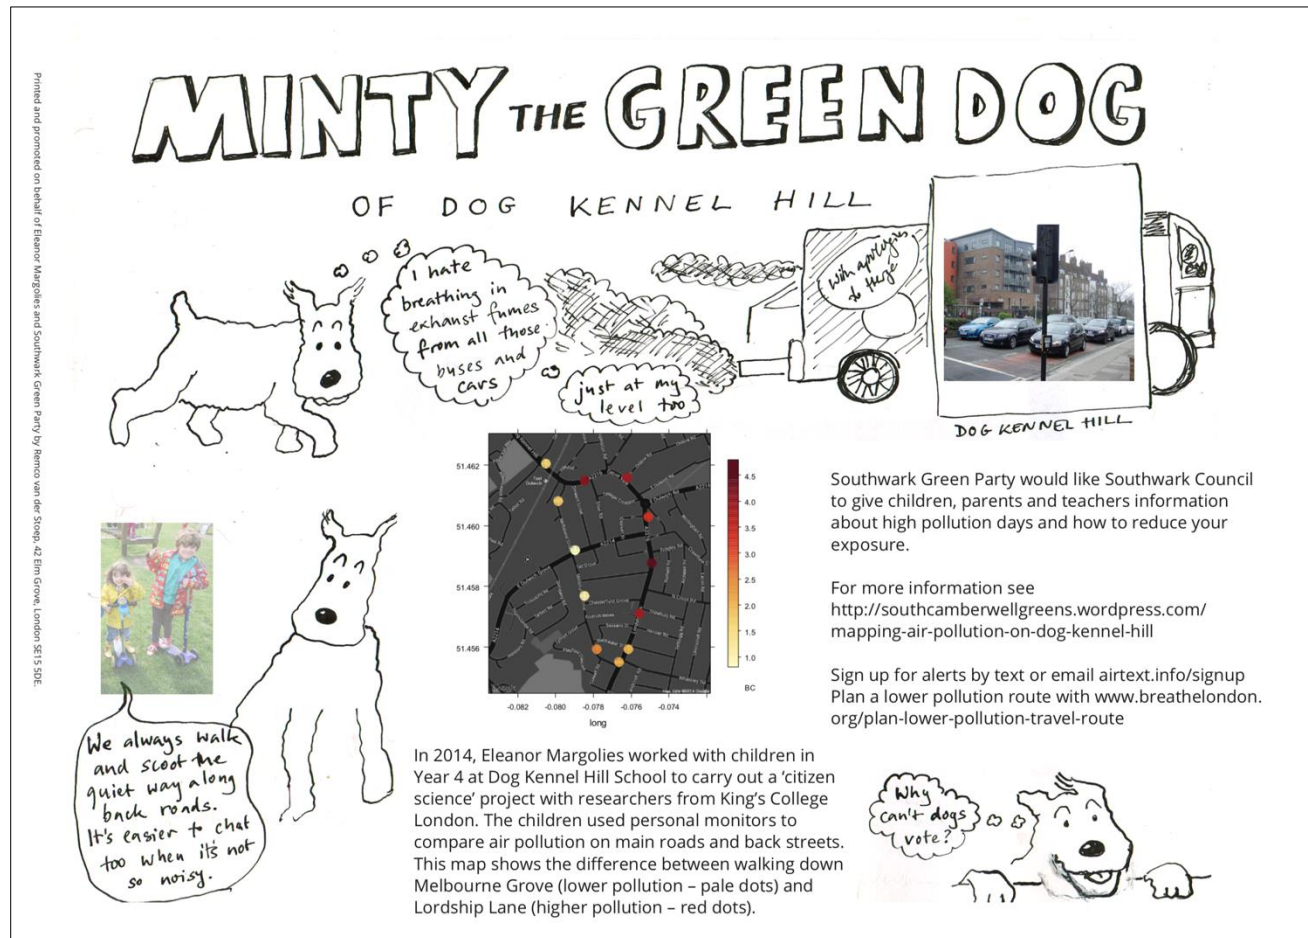 MINTY THE GREEN DOG
OF DOG KENNEL HILL
Printed and promoted on behalf of Eleanor Margolies and Southwark Green Party by Remco van der Stoep, 42 Elm Grove, London SE15 5DE.
I hate
breathing in
exhaust fumes
from all those
buses and
cars
just at my
level too
with apologies
to Hergé
DOG KENNEL HILL
51.462
51.460
51.458
51.456
-0.082
-0.080
-0.078
-0.076
-0.074
long
4.5
4.0
3.5
3.0
2.5
2.0
1.5
1.0
BC
Southwark Green Party would like Southwark Council
to give children, parents and teachers information
about high pollution days and how to reduce your
exposure.
For more information see
http://southcamberwellgreens.wordpress.com/
mapping-air-pollution-on-dog-kennel-hill
Sign up for alerts by text or email airtext.info/signup
Plan a lower pollution route with www.breathelondon.
org/plan-lower-pollution-travel-route
We always walk
and scoot the
quiet way along
back roads.
It's easier to chat
too when it's not
so noisy.
In 2014, Eleanor Margolies worked with children in
Year 4 at Dog Kennel Hill School to carry out a ‘citizen
science’ project with researchers from King’s College
London. The children used personal monitors to
compare air pollution on main roads and back streets.
This map shows the difference between walking down
Melbourne Grove (lower pollution – pale dots) and
Lordship Lane (higher pollution – red dots).
Why
can't dogs
vote?